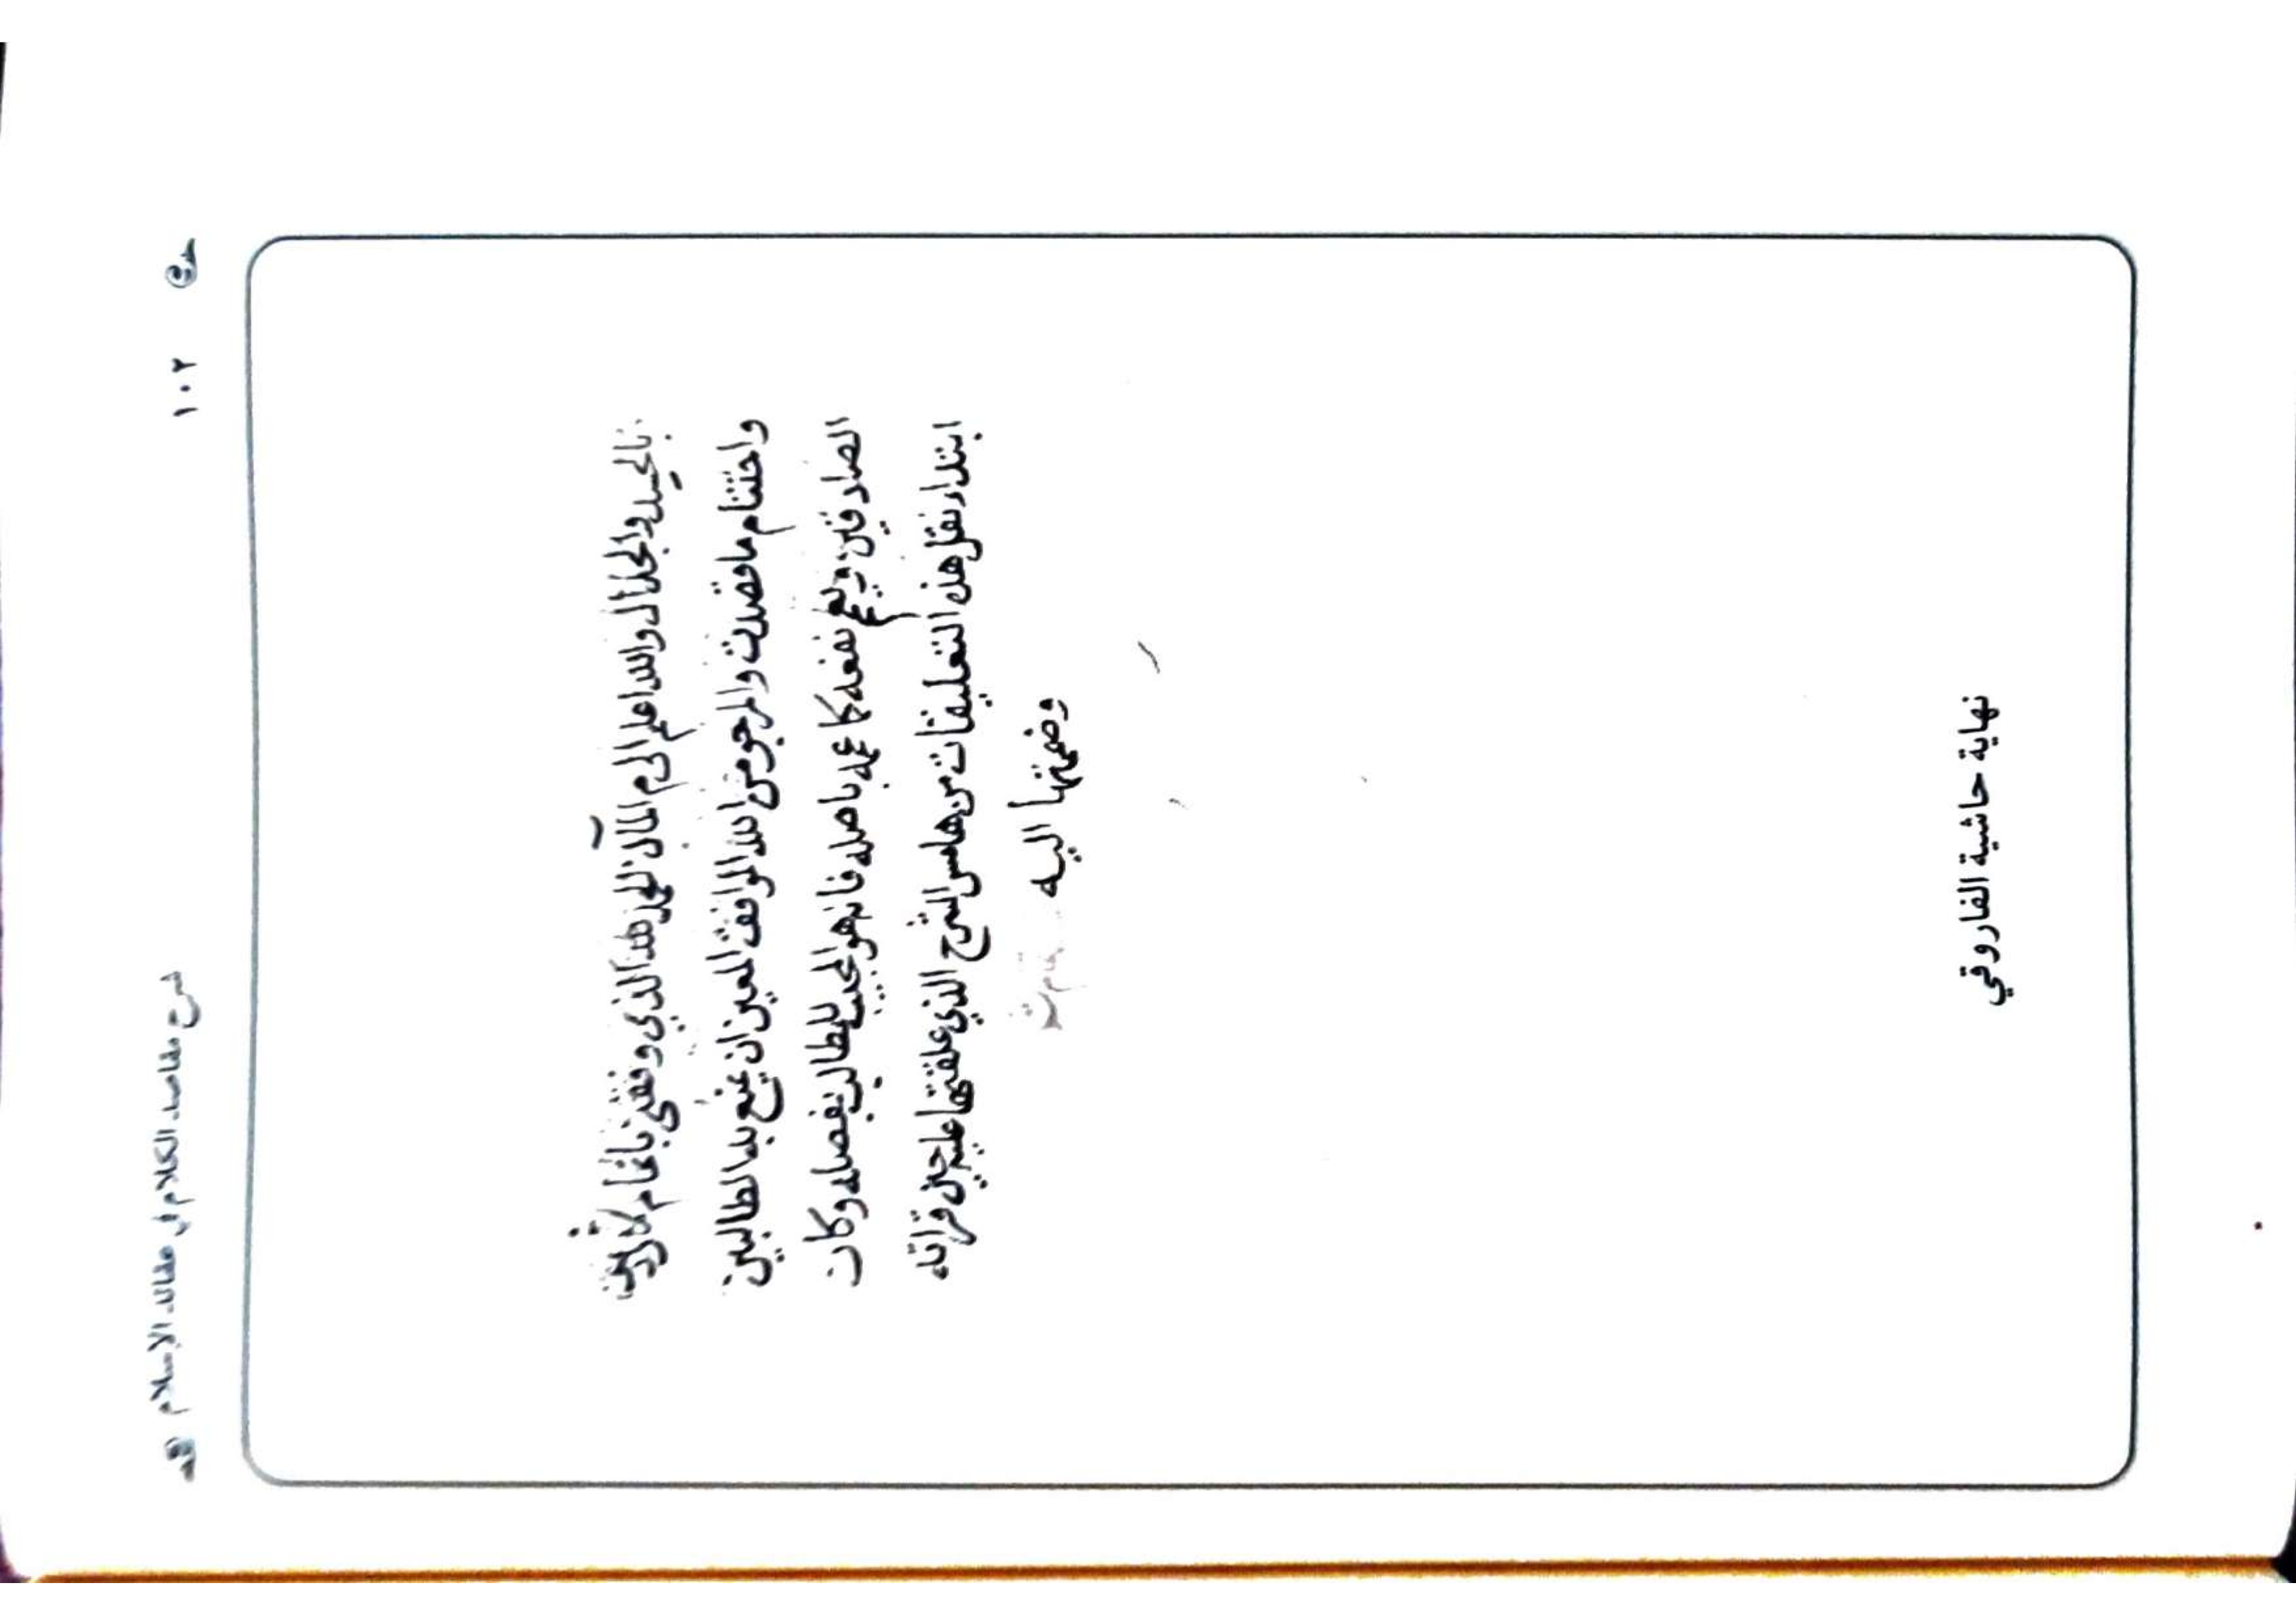 ١٠٢ شرح مقاصد الكلام في عقائد الإسلام
والجلال والله اعلم الحمد لله الذي وفقني باتمام
واختتام ما قصدت والمرجو من الله الموافق المعين ان ينتفع به الطالبين
الصادقين ويعم نفعه كما عمه باصله فانه هو المجيب للطالب بفصله وكان
ابتداء نقل هذه التعليقات من هامس الشرح الذي علقتها عليه حين قراته
وضممتها اليه
نهاية حاشية الفاروقي